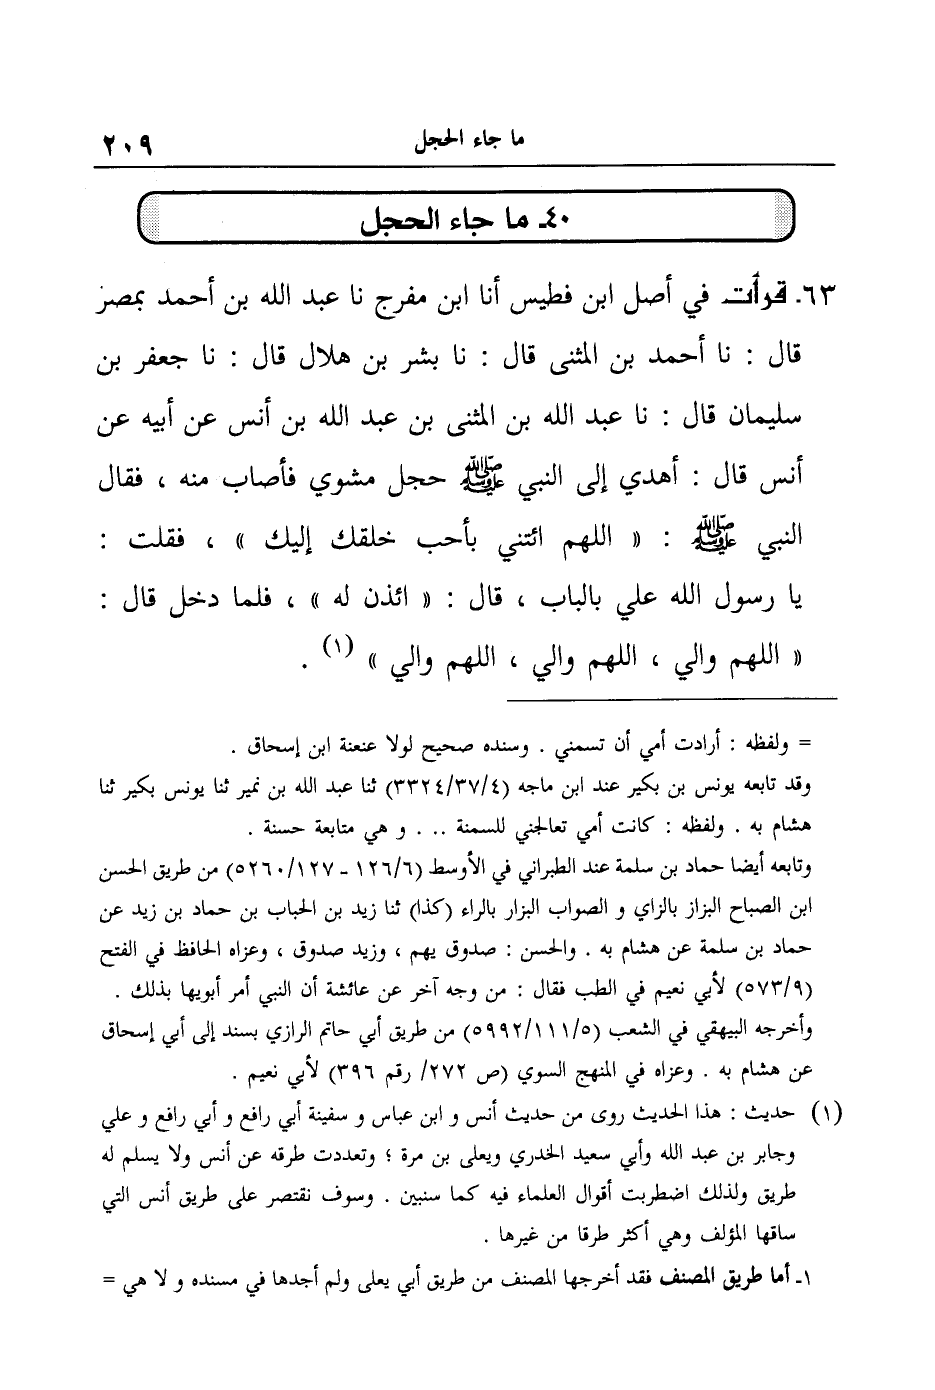 ما جاء الحجل ٢٠٩
٤٠ـ ما جاء الحجل
٦٣. قرأت في أصل ابن فطيس أنا ابن مفرج نا عبد الله بن أحمد بمصر
قال : نا أحمد بن المثنى قال : نا بشر بن هلال قال : نا جعفر بن
سليمان قال : نا عبد الله بن المثنى بن عبد الله بن أنس عن أبيه عن
أنس قال : أهدي إلى النبي ﷺ حجل مشوي فأصاب منه ، فقال
النبي ﷺ : « اللهم ائتني بأحب خلقك إليك » ، فقلت :
يا رسول الله علي بالباب ، قال : « ائذن له » ، فلما دخل قال :
« اللهم والي ، اللهم والي ، اللهم والي » (١) .
= ولفظه : أرادت أمي أن تسمني . وسنده صحيح لولا عنعنة ابن إسحاق .
وقد تابعه يونس بن بكير عند ابن ماجه (٣٣٢٤/٣٧/٤) ثنا عبد الله بن نمير ثنا يونس بكير ثنا
هشام به . ولفظه : كانت أمي تعالجني للسمنة .. . و هي متابعة حسنة .
وتابعه أيضا حماد بن سلمة عند الطبراني في الأوسط (١٢٦/٦ ـ ٥٢٦٠/١٢٧) من طريق الحسن
ابن الصباح البزاز بالزاي و الصواب البزار بالراء (كذا) ثنا زيد بن الحباب بن حماد بن زيد عن
حماد بن سلمة عن هشام به . والحسن : صدوق يهم ، وزيد صدوق ، وعزاه الحافظ في الفتح
(٥٧٣/٩) لأبي نعيم في الطب فقال : من وجه آخر عن عائشة أن النبي أمر أبويها بذلك .
وأخرجه البيهقي في الشعب (٥٩٩٢/١١١/٥) من طريق أبي حاتم الرازي بسند إلى أبي إسحاق
عن هشام به . وعزاه في المنهج السوي (ص ٢٧٢/ رقم ٣٩٦) لأبي نعيم .
(١) حديث : هذا الحديث روى من حديث أنس و ابن عباس و سفينة أبي رافع و أبي رافع و علي
وجابر بن عبد الله وأبي سعيد الخدري ويعلى بن مرة ؛ وتعددت طرقه عن أنس ولا يسلم له
طريق ولذلك اضطربت أقوال العلماء فيه كما سنبين . وسوف نقتصر على طريق أنس التي
ساقها المؤلف وهي أكثر طرقا من غيرها .
١ـ أما طريق المصنف فقد أخرجها المصنف من طريق أبي يعلى ولم أجدها في مسنده و لا هي =